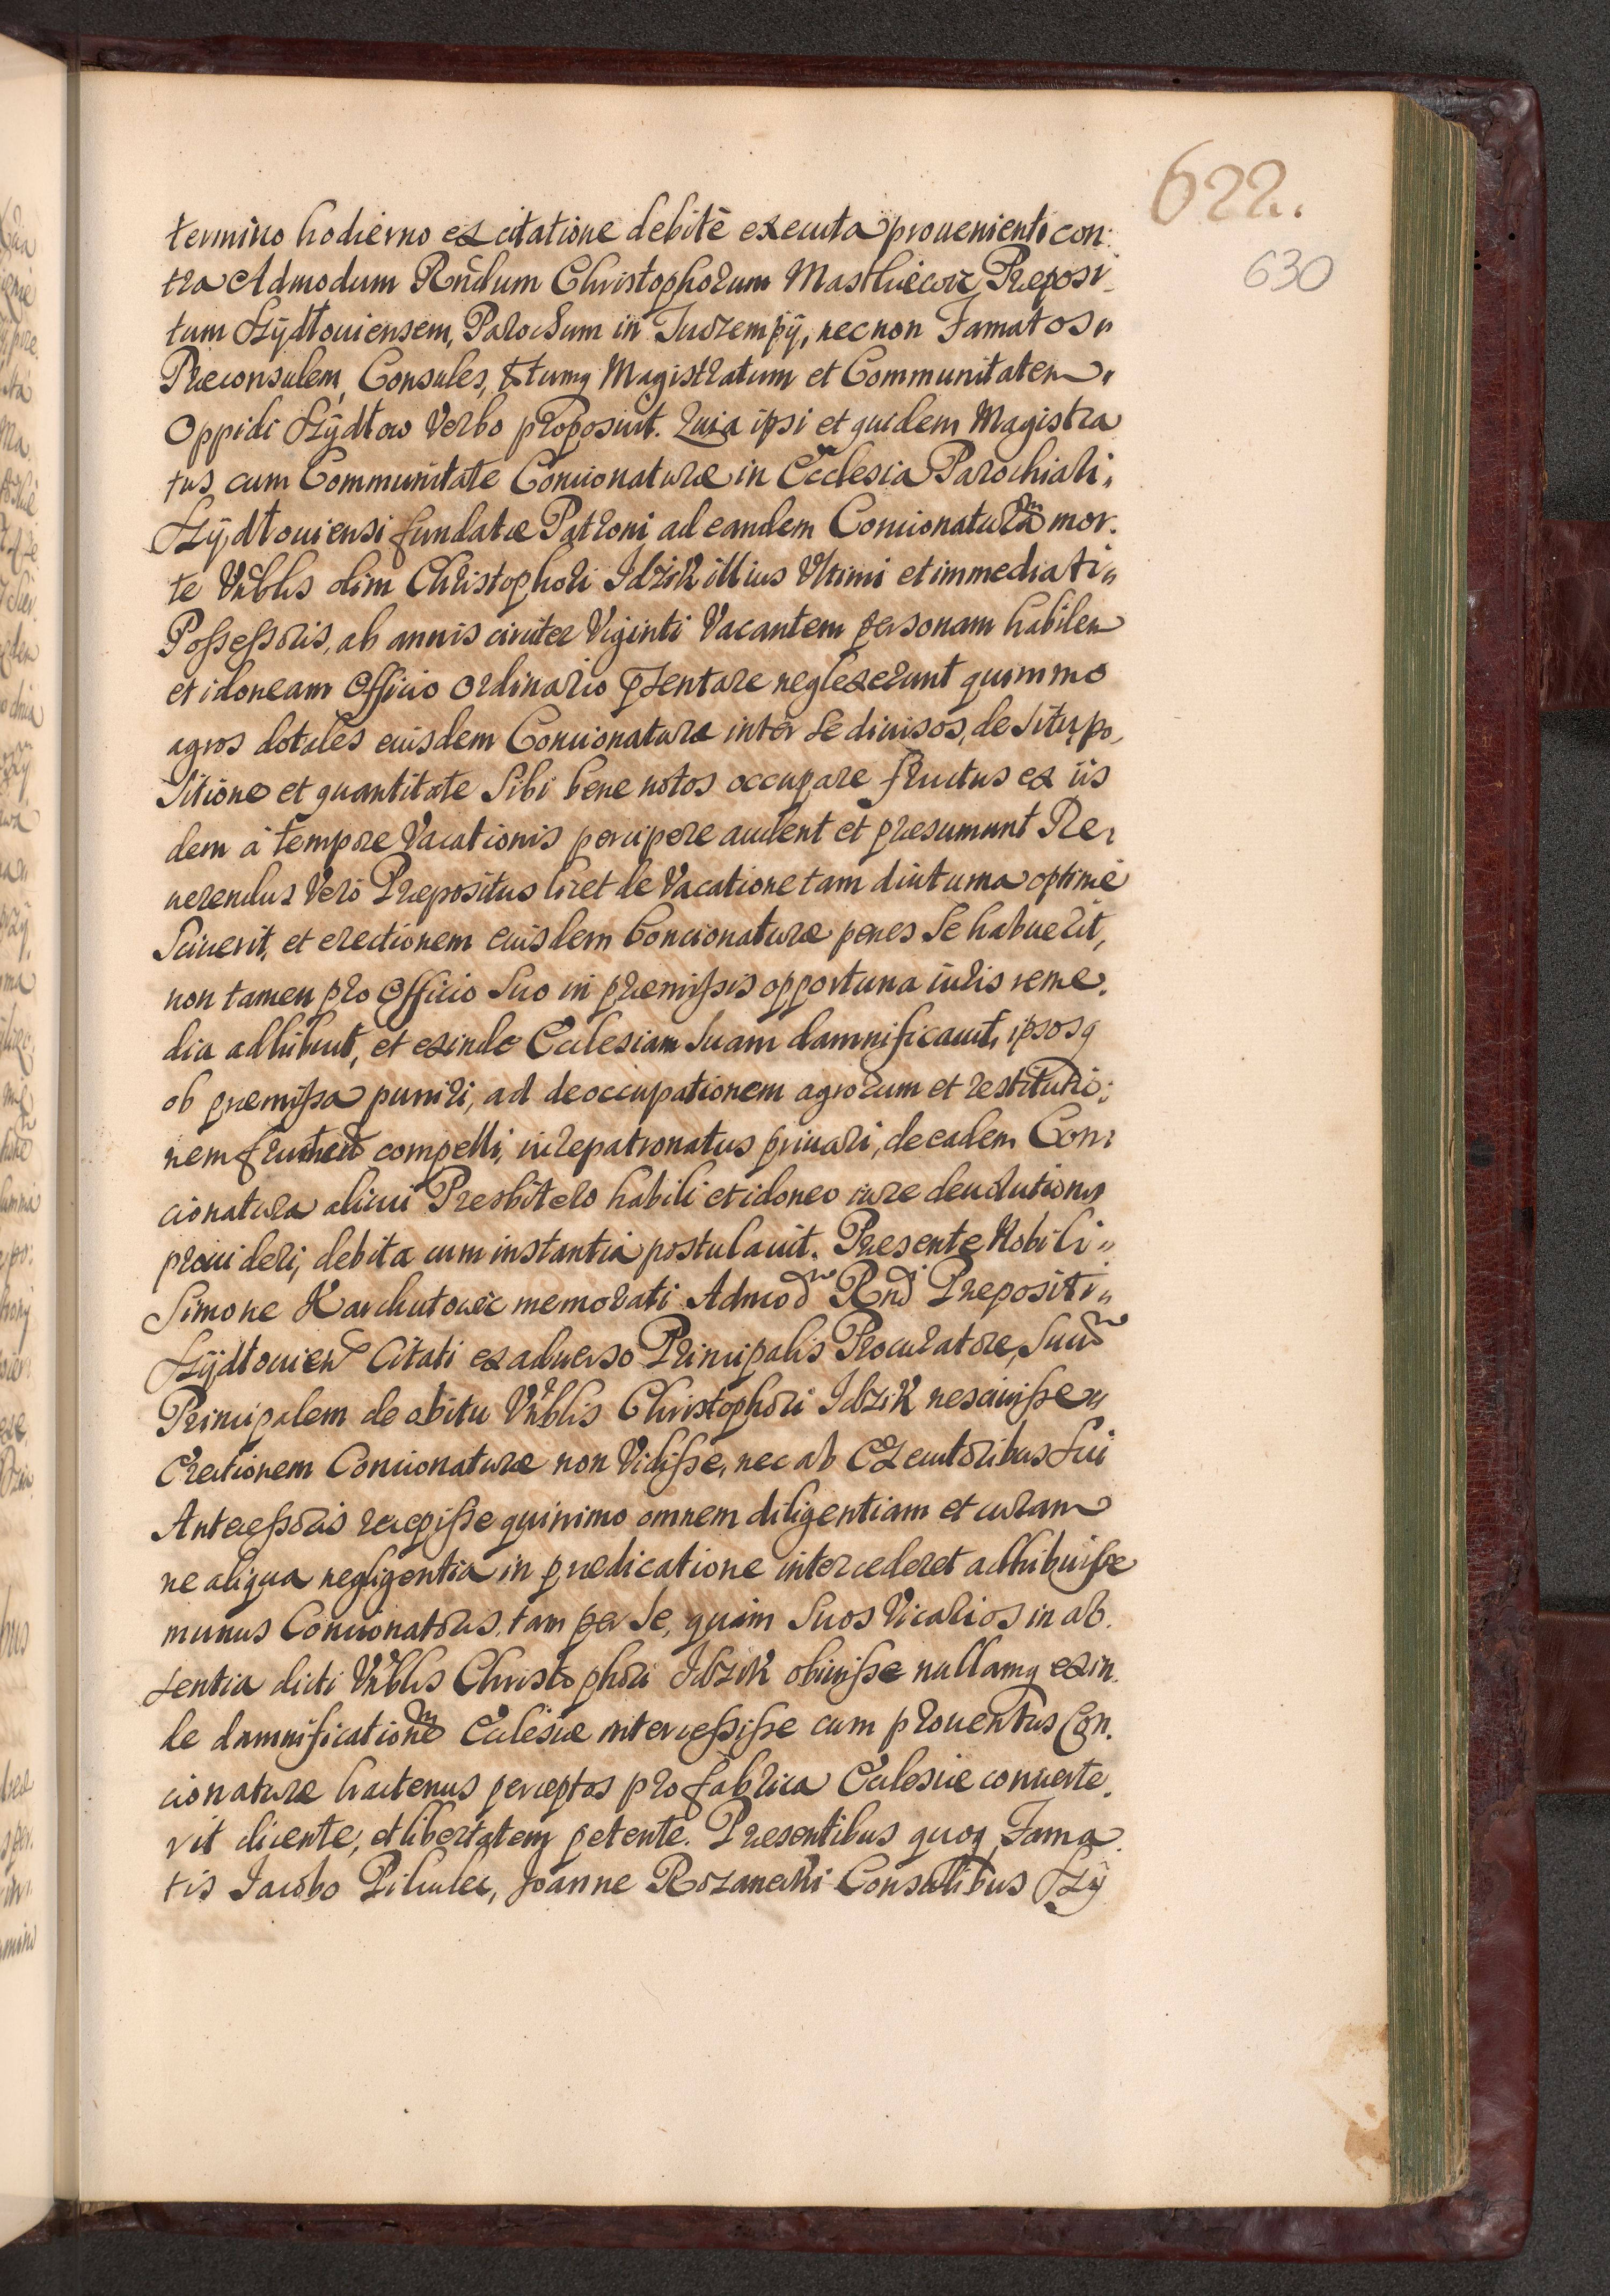 622.
630
termino hodierno ex citatione debitè executa proueniente con:
tra Admodum Rndum Christophorum Masthiewic Præposi
tum Szÿdłouiensem, Parochum in Iudzempÿ, necnon Famatos
Præconsulem, Consules, totumq Magistratum et Communitatem
Oppidi Szÿdłow Verbo proposuit. Quia ipsi et quidem Magistra
tus cum Communitate Concionaturæ in Ecclesia Parochiali
Szÿdłouiensi fundatæ Patroni ad eandem Concionaturam mor.
te Vnblis olim Christophori Idzik illius Vltimi et immediati
Possessoris, ab annis circiter Viginti Vacantem personam habilem
et idoneam Officio Ordinario psentare neglexerunt quinimo
agros dotales eiusdem Concionaturæ inter se diuisos, de situ, po,
sitione et quantitate sibi bene notos occupare fructus ex iis
dem à tempore Vacationis percipere audent et præsumunt Re,
uerendus Verò Præpositus licet de Vacatione tam diuturna optimè
Sciuerit, et erectionem eiusdem Concionaturæ penes Se habuerit,
non tamen pro Officio Suo in præmissis opportuna iuris reme.
dia adhibuit, et exinde Ecclesiam Suam damnificauit, ipsosq
ob præmissa puniri, ad deoccupationem agrorum et restitutio:
nem fructuū compelli, iurepatronatus priuari, de eadem Con:
cionatura alicui Presbitero habili et idoneo iure deuolutionis
prouideri, debita cum instantia postulauit. Præsente Nobili
Simone Karchutowic memorati Admod Rnd Præpositi
Szÿdłouien Citati ex aduerso Principalis Procuratore, Suū
Principalem de obitu Vnblis Christophori Idzik nesciuisse
Erectionem Concionaturæ non Vidisse, nec ab Executoribus Sui
Antecessoris recepisse quinimo omnem diligentiam et curam
ne aliqua negligentia in prædicatione intercederet adhibuisse
munus Concionatoris, tam per Se, quàm Suos Vicarios in ab.
sentia dicti Vnblis Christophori Idzik obiuisse nullamq exin.
de damnificationem Ecclesiæ intercessisse cum prouentus Con.
cionaturæ hactenus perceptos pro fabrica Ecclesiæ conuerte.
rit dicente, et libertatem petente. Præsentibus quoq Fama
tis Iacobo Pihulec, Joanne Rozanecki Consulibus Szÿ